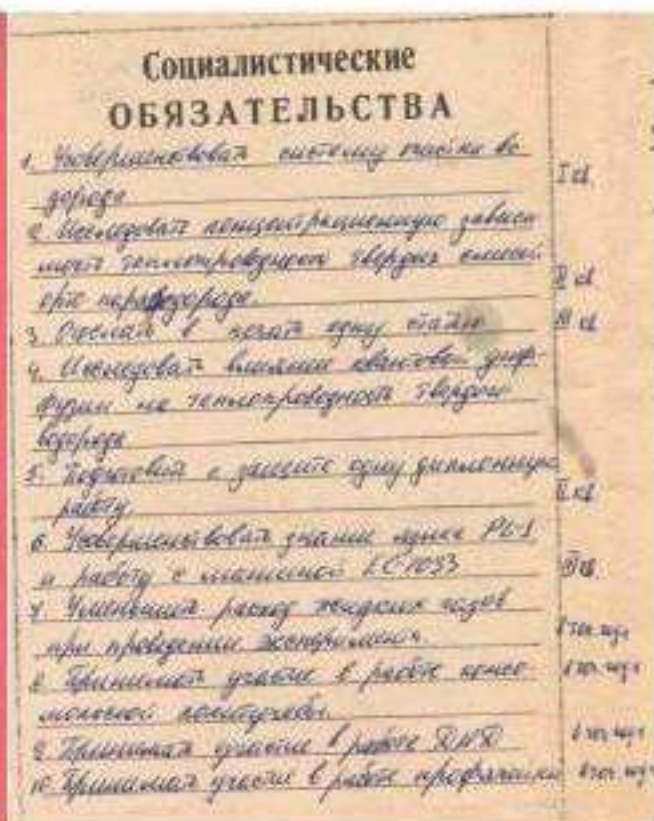 Социалистические
ОБЯЗАТЕЛЬСТВА
1. Усовершенствовать систему очистки во
дорода I кв.
2. Исследовать концентрационную зависи
мость теплопроводности твердых смесей
орто параводорода. кв
3. Отослать в печать одну статью кв
4. Исследовать влияние квантовой диф-
фузии на теплопроводность твердого
водорода
5. Подготовить к защите одну дипломную
работу II кв
6. Усовершенствовать знание языка PL-1
и работу с машиной ЕС1033 кв
7. Уменьшить расход жидких газов
при проведении эксперимента. в теч. года
8. Принимать участие в работе комсо-
мольской политучебы. в теч. года
9. Принимать участие в работе ДНД в теч. года
10. Принимать участие в работе профячейки в теч. года